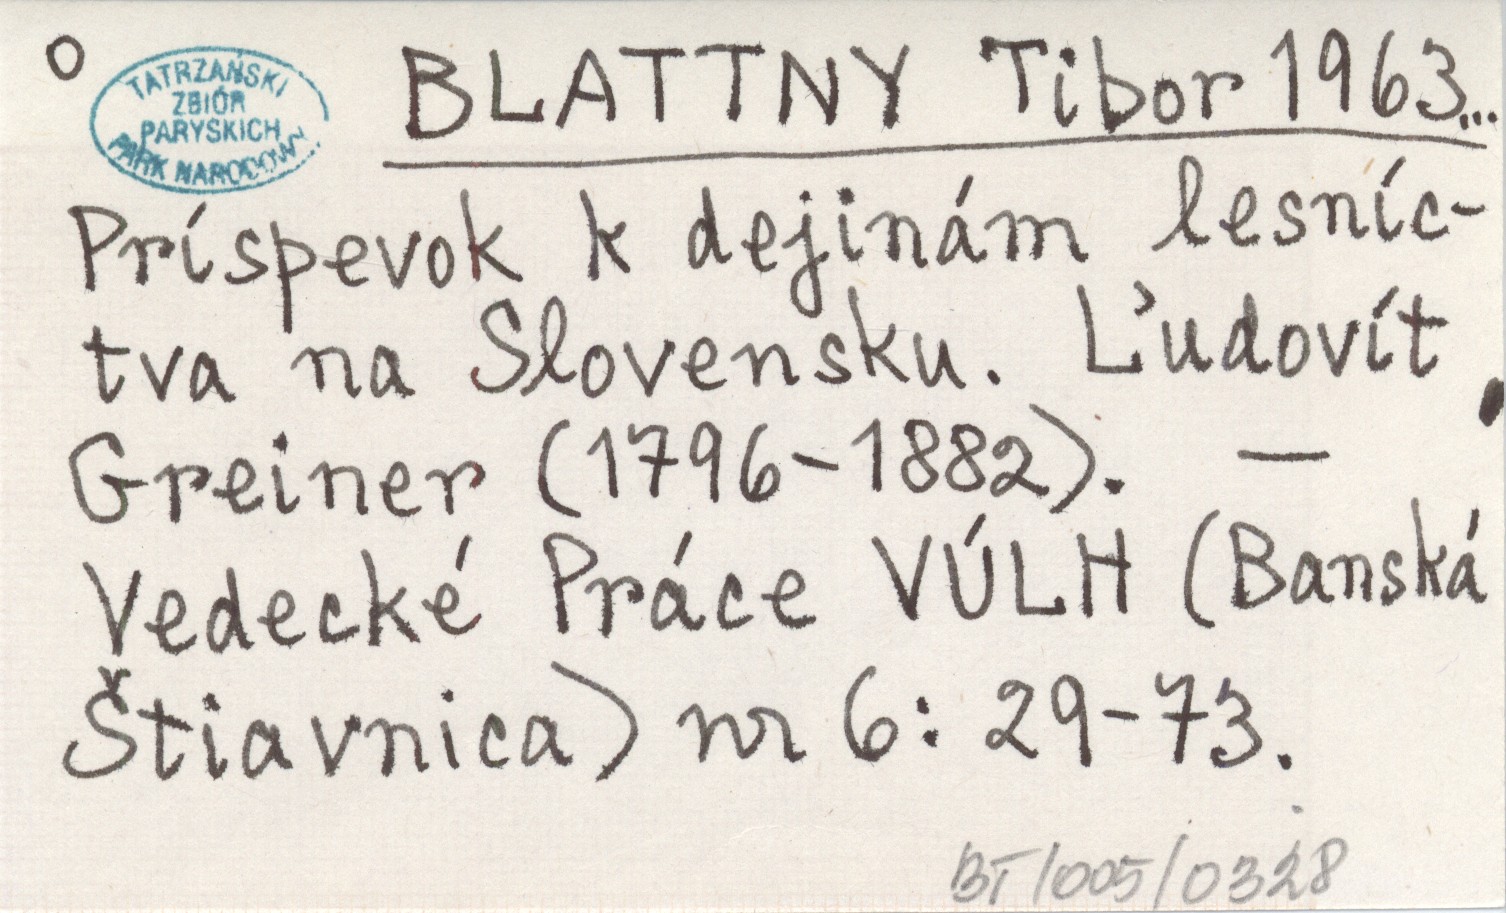 O
TATRZAŃSKI
ZBIÓR
PARYSKICH
PARK NARODOWY
BLATTNY Tibor 1963...
Príspevok k dejinám lesníc-
tva na Slovensku. Ľudovít
Greiner (1796-1882). —
Vedecké Práce VÚLH (Banská
Štiavnica) nr 6: 29-73.
BT/005/0328